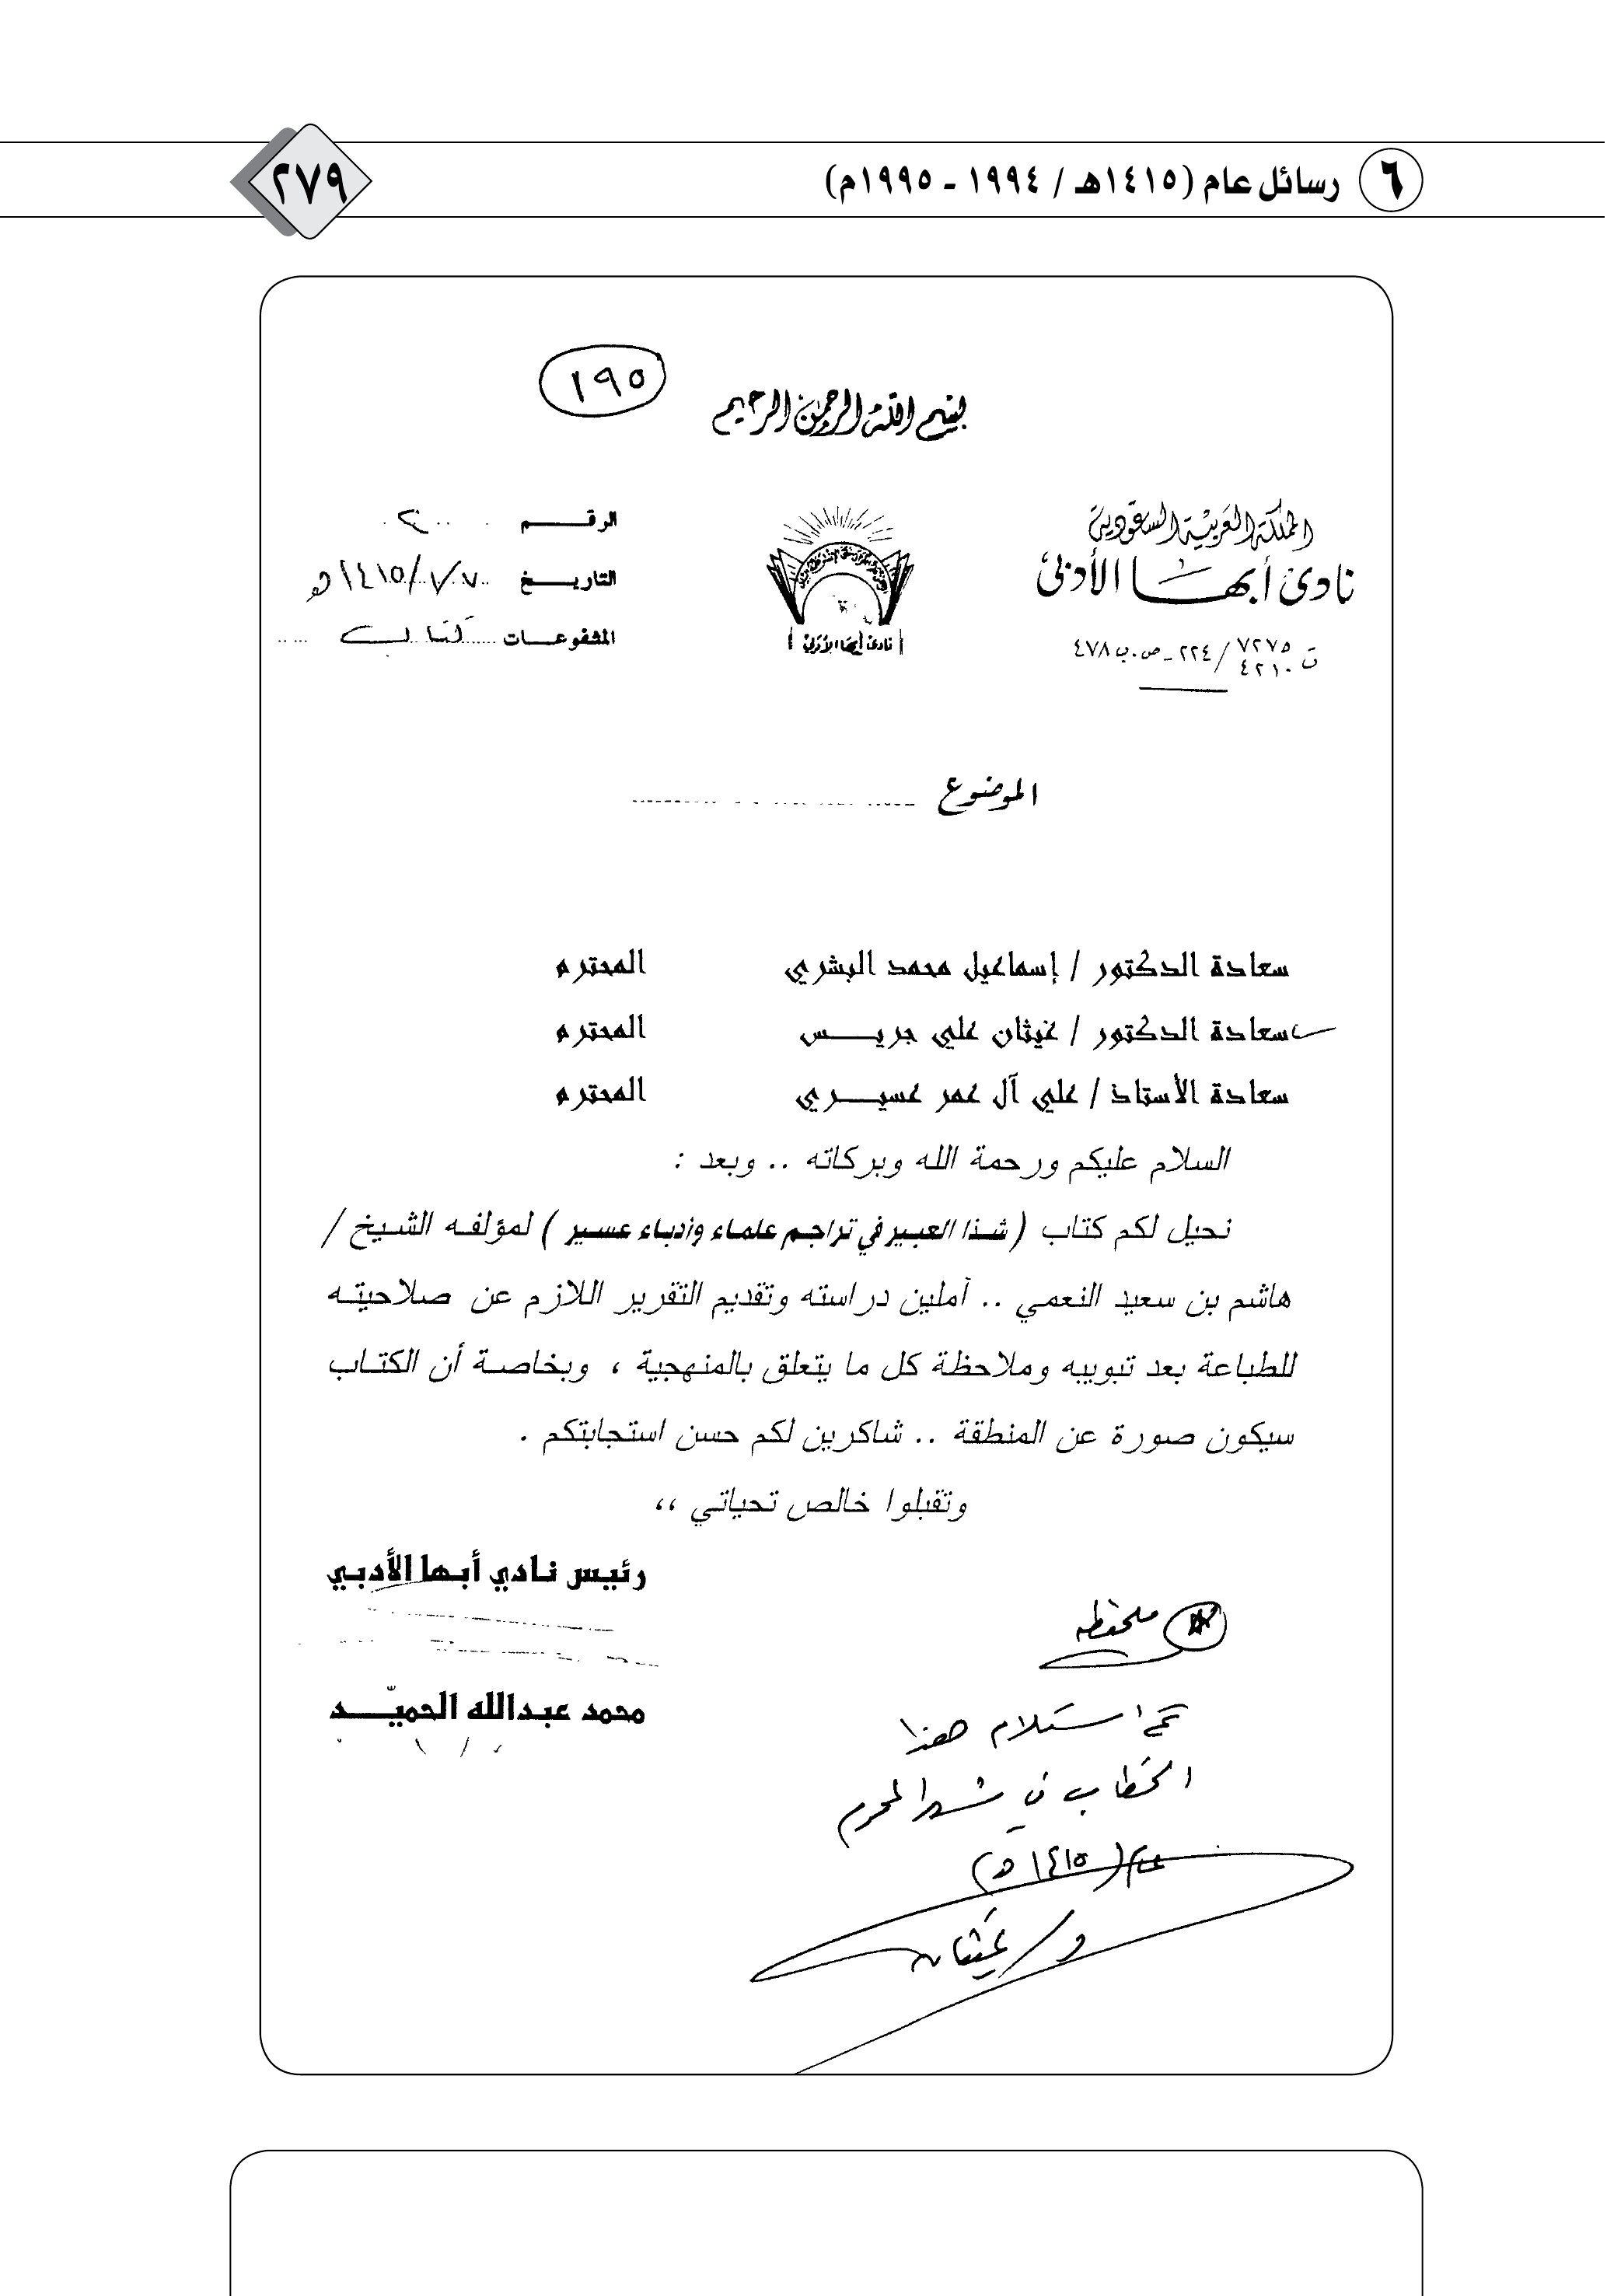 ٦ رسائل عام (١٤١٥هـ / ١٩٩٤ - ١٩٩٥م)
٢٧٩
١٩٥
بسم الله الرحمن الرحيم
المملكة العربية السعودية
نادي أبها الأدبي
ت ٧٢٧٥ / ٢٢٤ - ص.ب ٤٧٨
٤٢١٠
نادي أبها الأدبي
الرقم
التاريخ ٧/١/١٤١٥هـ
المشفوعات كتاب
الموضوع
سعادة الدكتور / إسماعيل محمد البشري المحترم
سعادة الدكتور / غيثان علي جريــس المحترم
سعادة الأستاذ / علي آل عمر عسيــري المحترم
السلام عليكم ورحمة الله وبركاته .. وبعد :
نحيل لكم كتاب ( شذا العبير في تراجم علماء وأدباء عسير ) لمؤلفه الشيخ /
هاشم بن سعيد النعمي .. آملين دراسته وتقديم التقرير اللازم عن صلاحيته
للطباعة بعد تبويبه وملاحظة كل ما يتعلق بالمنهجية ، وبخاصة أن الكتاب
سيكون صورة عن المنطقة .. شاكرين لكم حسن استجابتكم .
وتقبلوا خالص تحياتي ،،
رئيس نادي أبها الأدبي
محمد عبدالله الحميّــد
ملحظه
تم استلام هذا
الخطاب في شهر المحرم
عام (١٤١٥هـ)
د/ غيثان